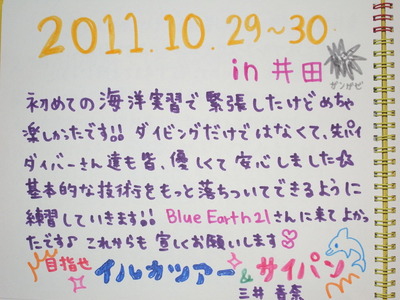 2011.10.29~30
in 井田
ガンガゼ
初めての海洋実習で緊張したけどめちゃ
楽しかったです!! ダイビングだけではなくて、先パイ
ダイバーさん達も皆、優しくて安心しました☆
基本的な技術をもっと落ちついてできるように
練習していきます!! Blue Earth21さんに来てよかっ
たです♪ これからも宜しくお願いします♡
目指せ イルカツアー & サイパン
三井